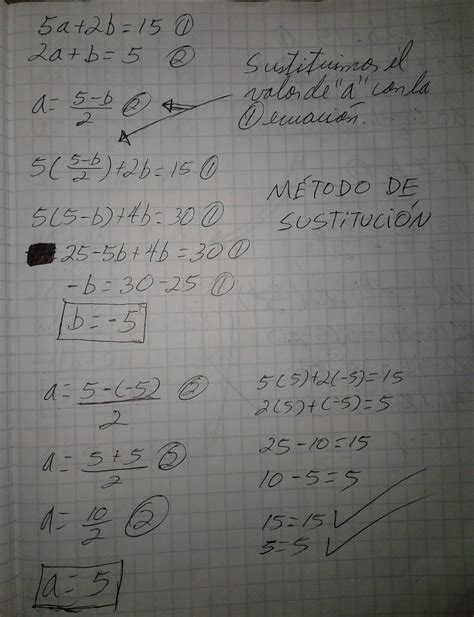 5a+2b=15 ①
2a+b=5 ②
a= (5-b)/2 ②
Sustituimos el
valor de "a" con la
① ecuación.
5((5-b)/2)+2b=15 ①
5(5-b)+4b=30 ①
MÉTODO DE
SUSTITUCIÓN
25-5b+4b=30 ①
-b=30-25 ①
b=-5
a= (5-(-5))/2 ②
a= (5+5)/2 ②
a= 10/2 ②
a=5
5(5)+2(-5)=15
2(5)+(-5)=5
25-10=15
10-5=5
15=15 ✓
5=5 ✓